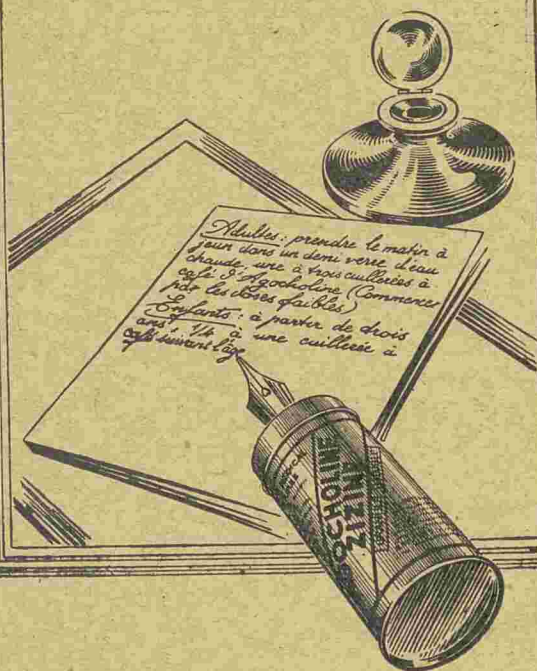 Adultes: prendre le matin à
jeun dans un demi verre d'eau
chaude, une à trois cuillerées à
café d'Agocholine (Commencer
par les doses faibles)
Enfants: à partir de trois
ans: 1/4 à une cuillerée à
café suivant l'âge
OCHOLINE
ZIZINE